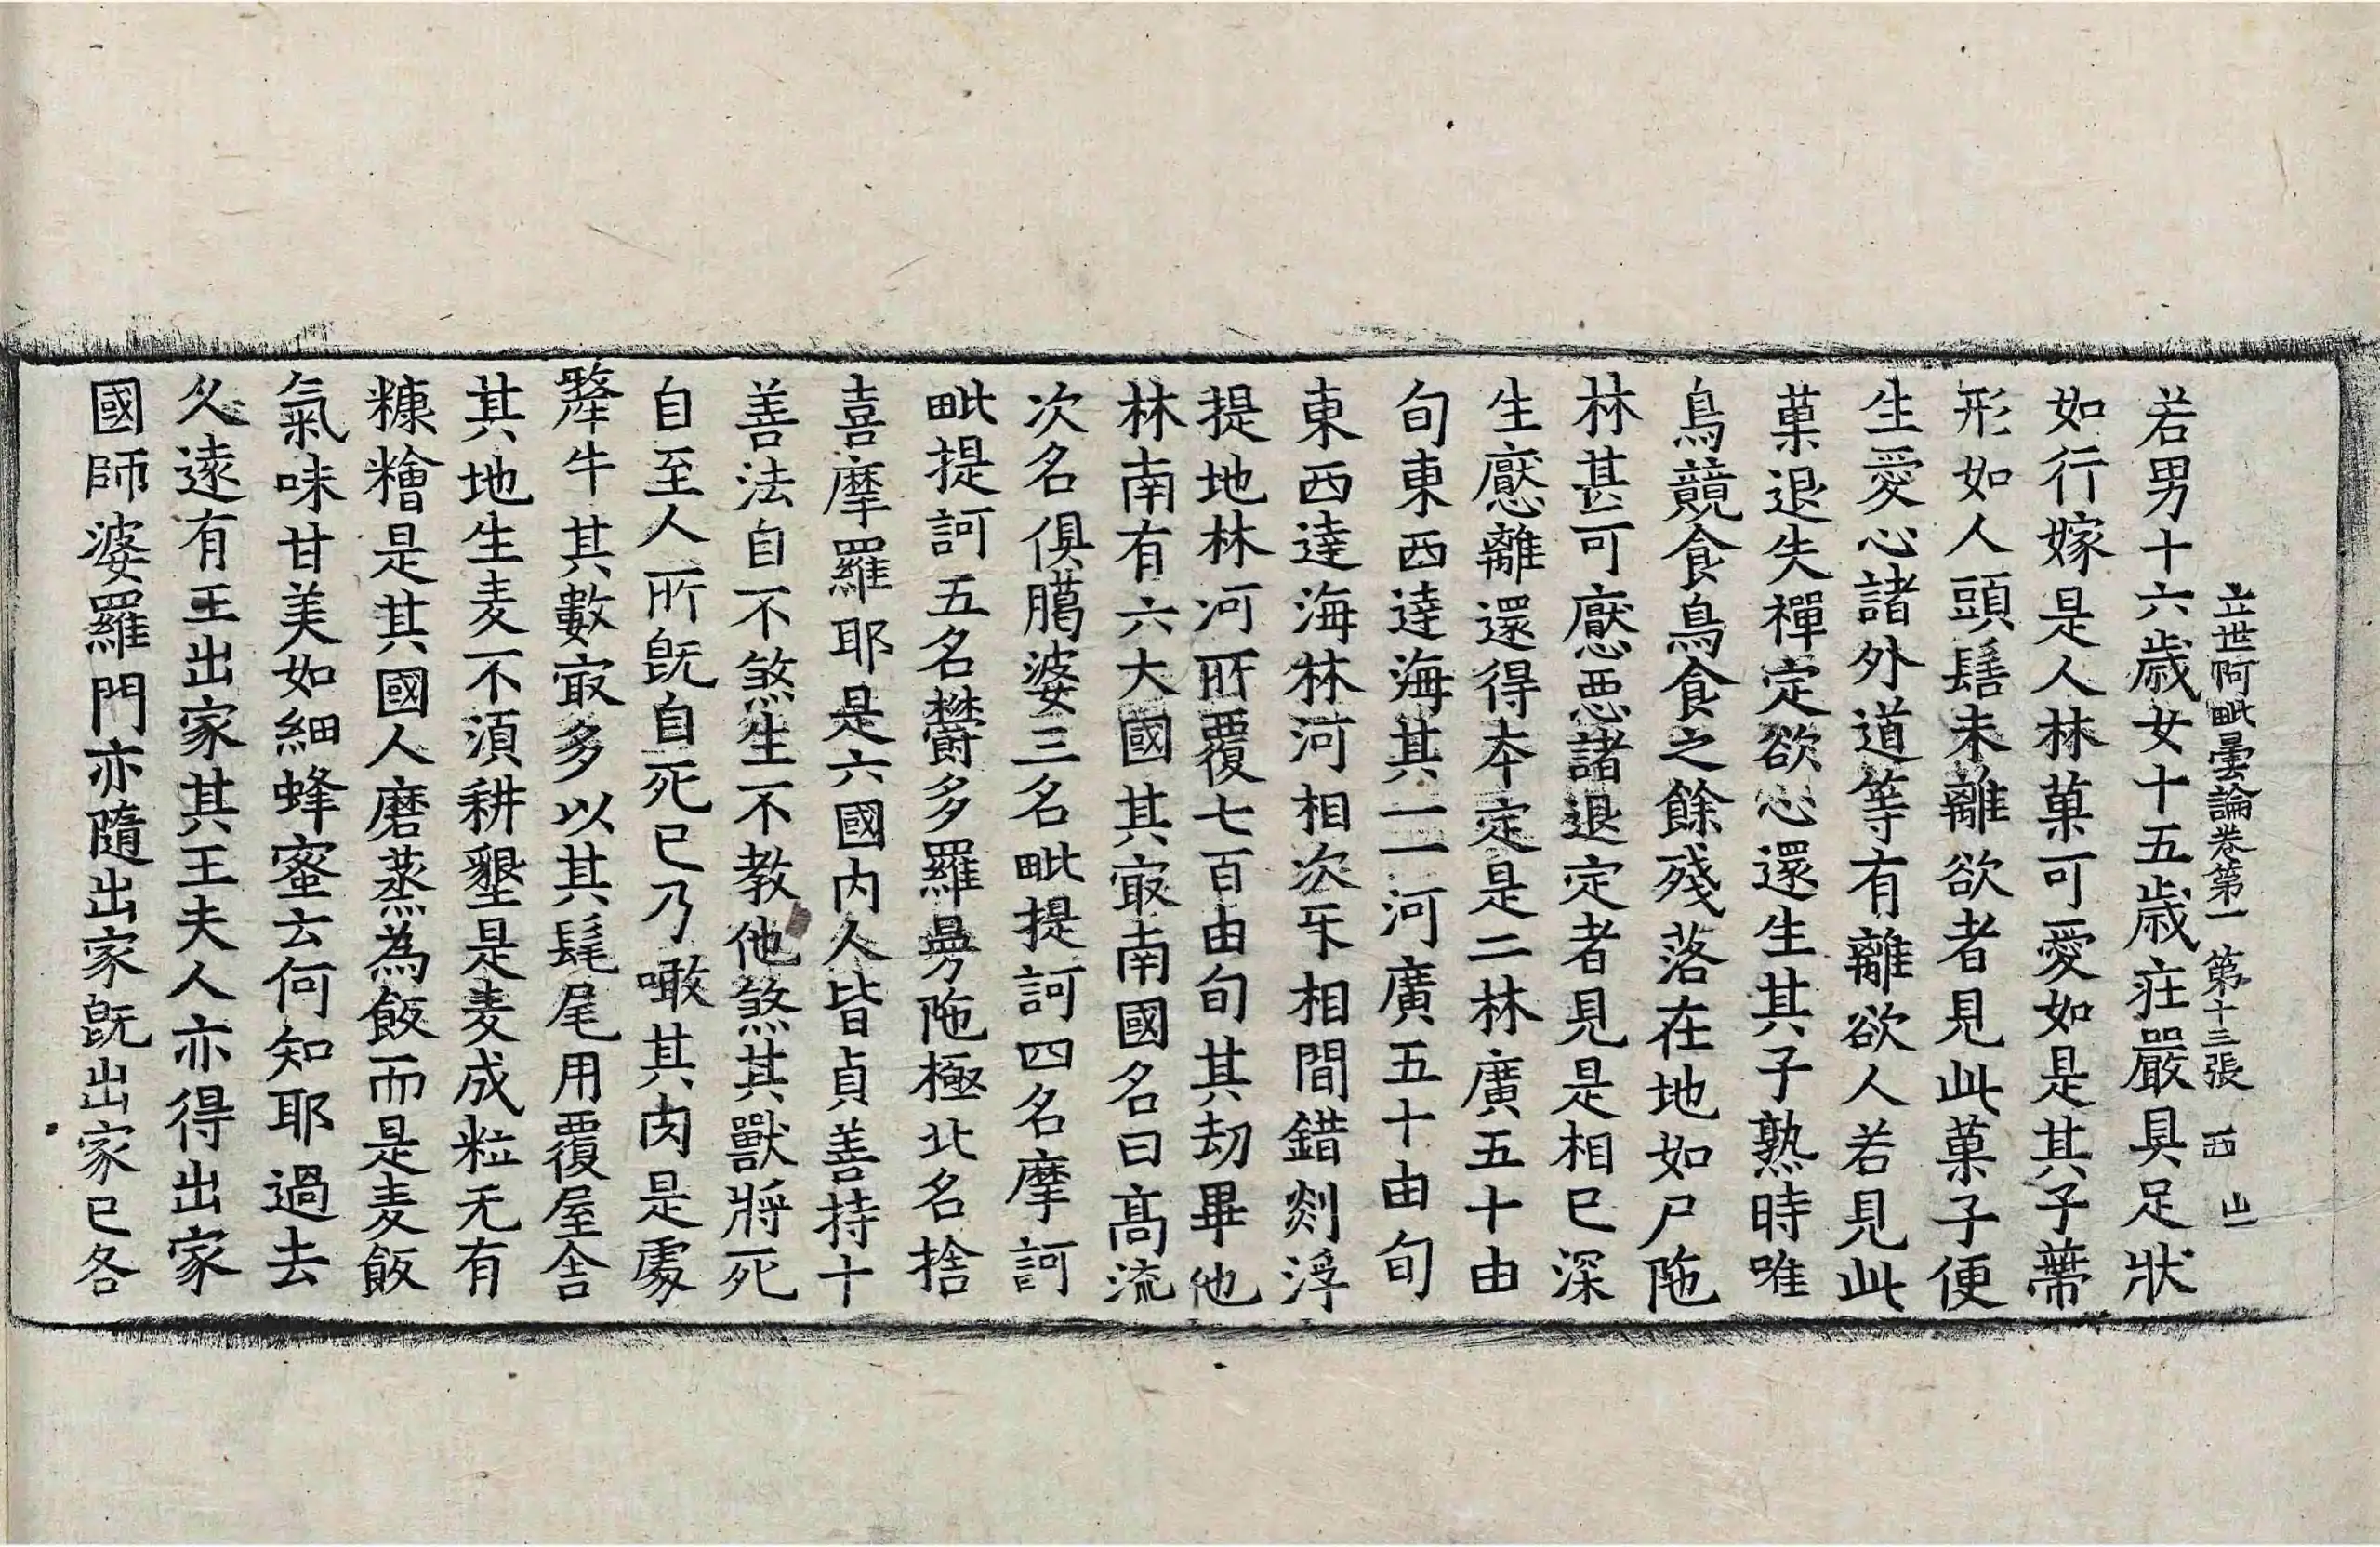 立世阿毗曇論卷第一 第十三張 西 山
若男十六歲女十五歲莊嚴具足狀
如行嫁是人林菓可愛如是其子蔕
形如人頭髻未離欲者見此菓子便
生愛心諸外道等有離欲人若見此
菓退失禪定欲心還生其子熟時唯
鳥競食鳥食之餘殘落在地如尸陁
林甚可猒惡諸退定者見是相已深
生猒離還得本定是二林廣五十由
旬東西達海其一一河廣五十由旬
東西達海林河相次牙相間錯剡浮
提地林河所覆七百由旬其刧畢他
林南有六大國其冣南國名曰髙流
次名俱臈婆三名毗提訶四名摩訶
毗提訶五名欝多羅曼陁極北名捨
喜摩羅耶是六國内人皆貞善持十
善法自不煞生不教他煞其獸將死
自至人所旣自死已乃噉其肉是處
犛牛其數冣多以其髦尾用覆屋舍
其地生麦不湏耕墾是麦成粒无有
糠糩是其國人磨蒸為飯而是麦飯
氣味甘美如細蜂蜜云何知耶過去
久遠有王出家其王夫人亦得出家
國師婆羅門亦隨出家旣出家已各